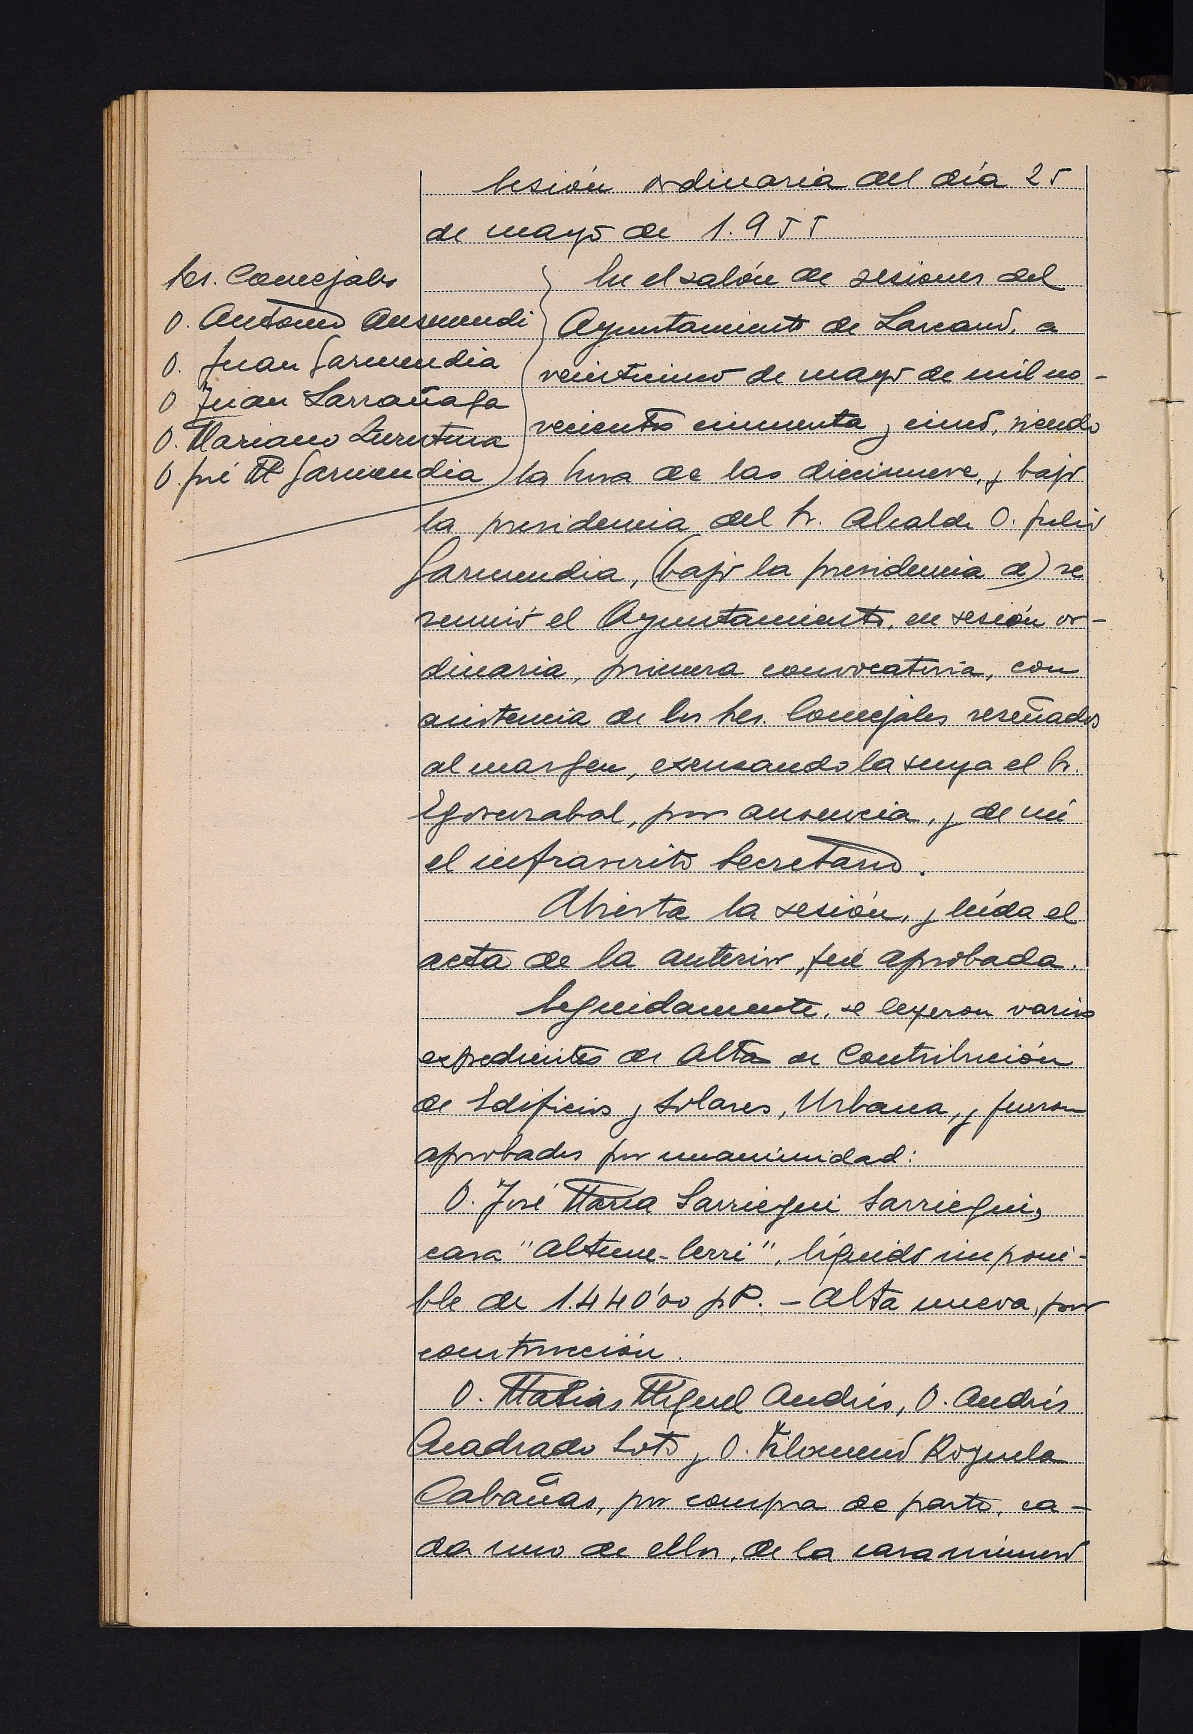 Sesión ordinaria del día 25
de mayo de 1.955
Srs. Concejales
D. Antonio Ausmendi
D. Juan Garmendia
D. Juan Larrañaga
D. Mariano Zurutuza
D. José Mª Garmendia
En el salón de sesiones del
Ayuntamiento de Lazcano, a
veinticinco de mayo de mil no-
vecientos cincuenta y cinco, siendo
la hora de las diecinueve, y bajo
la presidencia del Sr. Alcalde D. Julio
Garmendia, (bajo la presidencia d) se
reunió el Ayuntamiento, en sesión or-
dinaria, primera convocatoria, con
asistencia de los Srs. Concejales reseñados
al margen, excusando la suya el Sr.
Egoscozabal, por ausencia, y de mí
el infrascrito Secretario.
Abierta la sesión, y leída el
acta de la anterior, fué aprobada.
Seguidamente, se leyeron varios
expedientes de Alta de Contribución
de Edificios y Solares, Urbana, y fueron
aprobados por unanimidad:
D. José María Sarriegui Sarriegui,
casa "Altune-berri", líquido imponi-
ble de 1.440'00 pts. - Alta nueva, por
construcción.
D. Matías Miguel Andrés, D. Andrés
Cuadrado Soto y D. Filomeno Royuela
Cabañas, por compra de parte, ca-
da uno de ellos, de la casa número